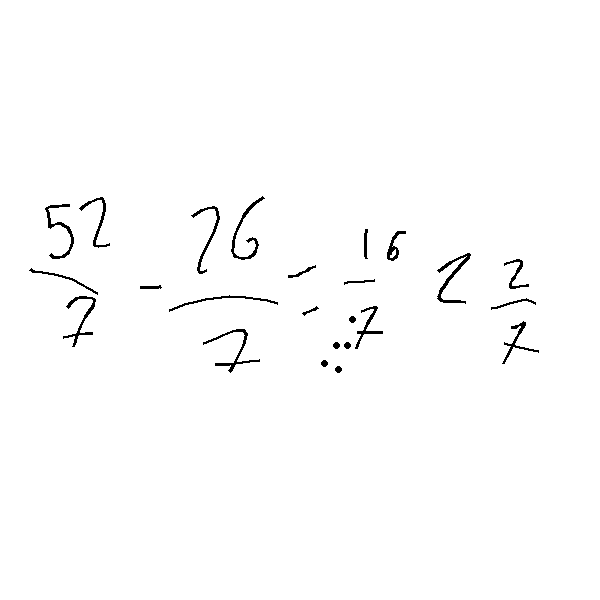 52/7 - 26/7 = 16/7 2 2/7